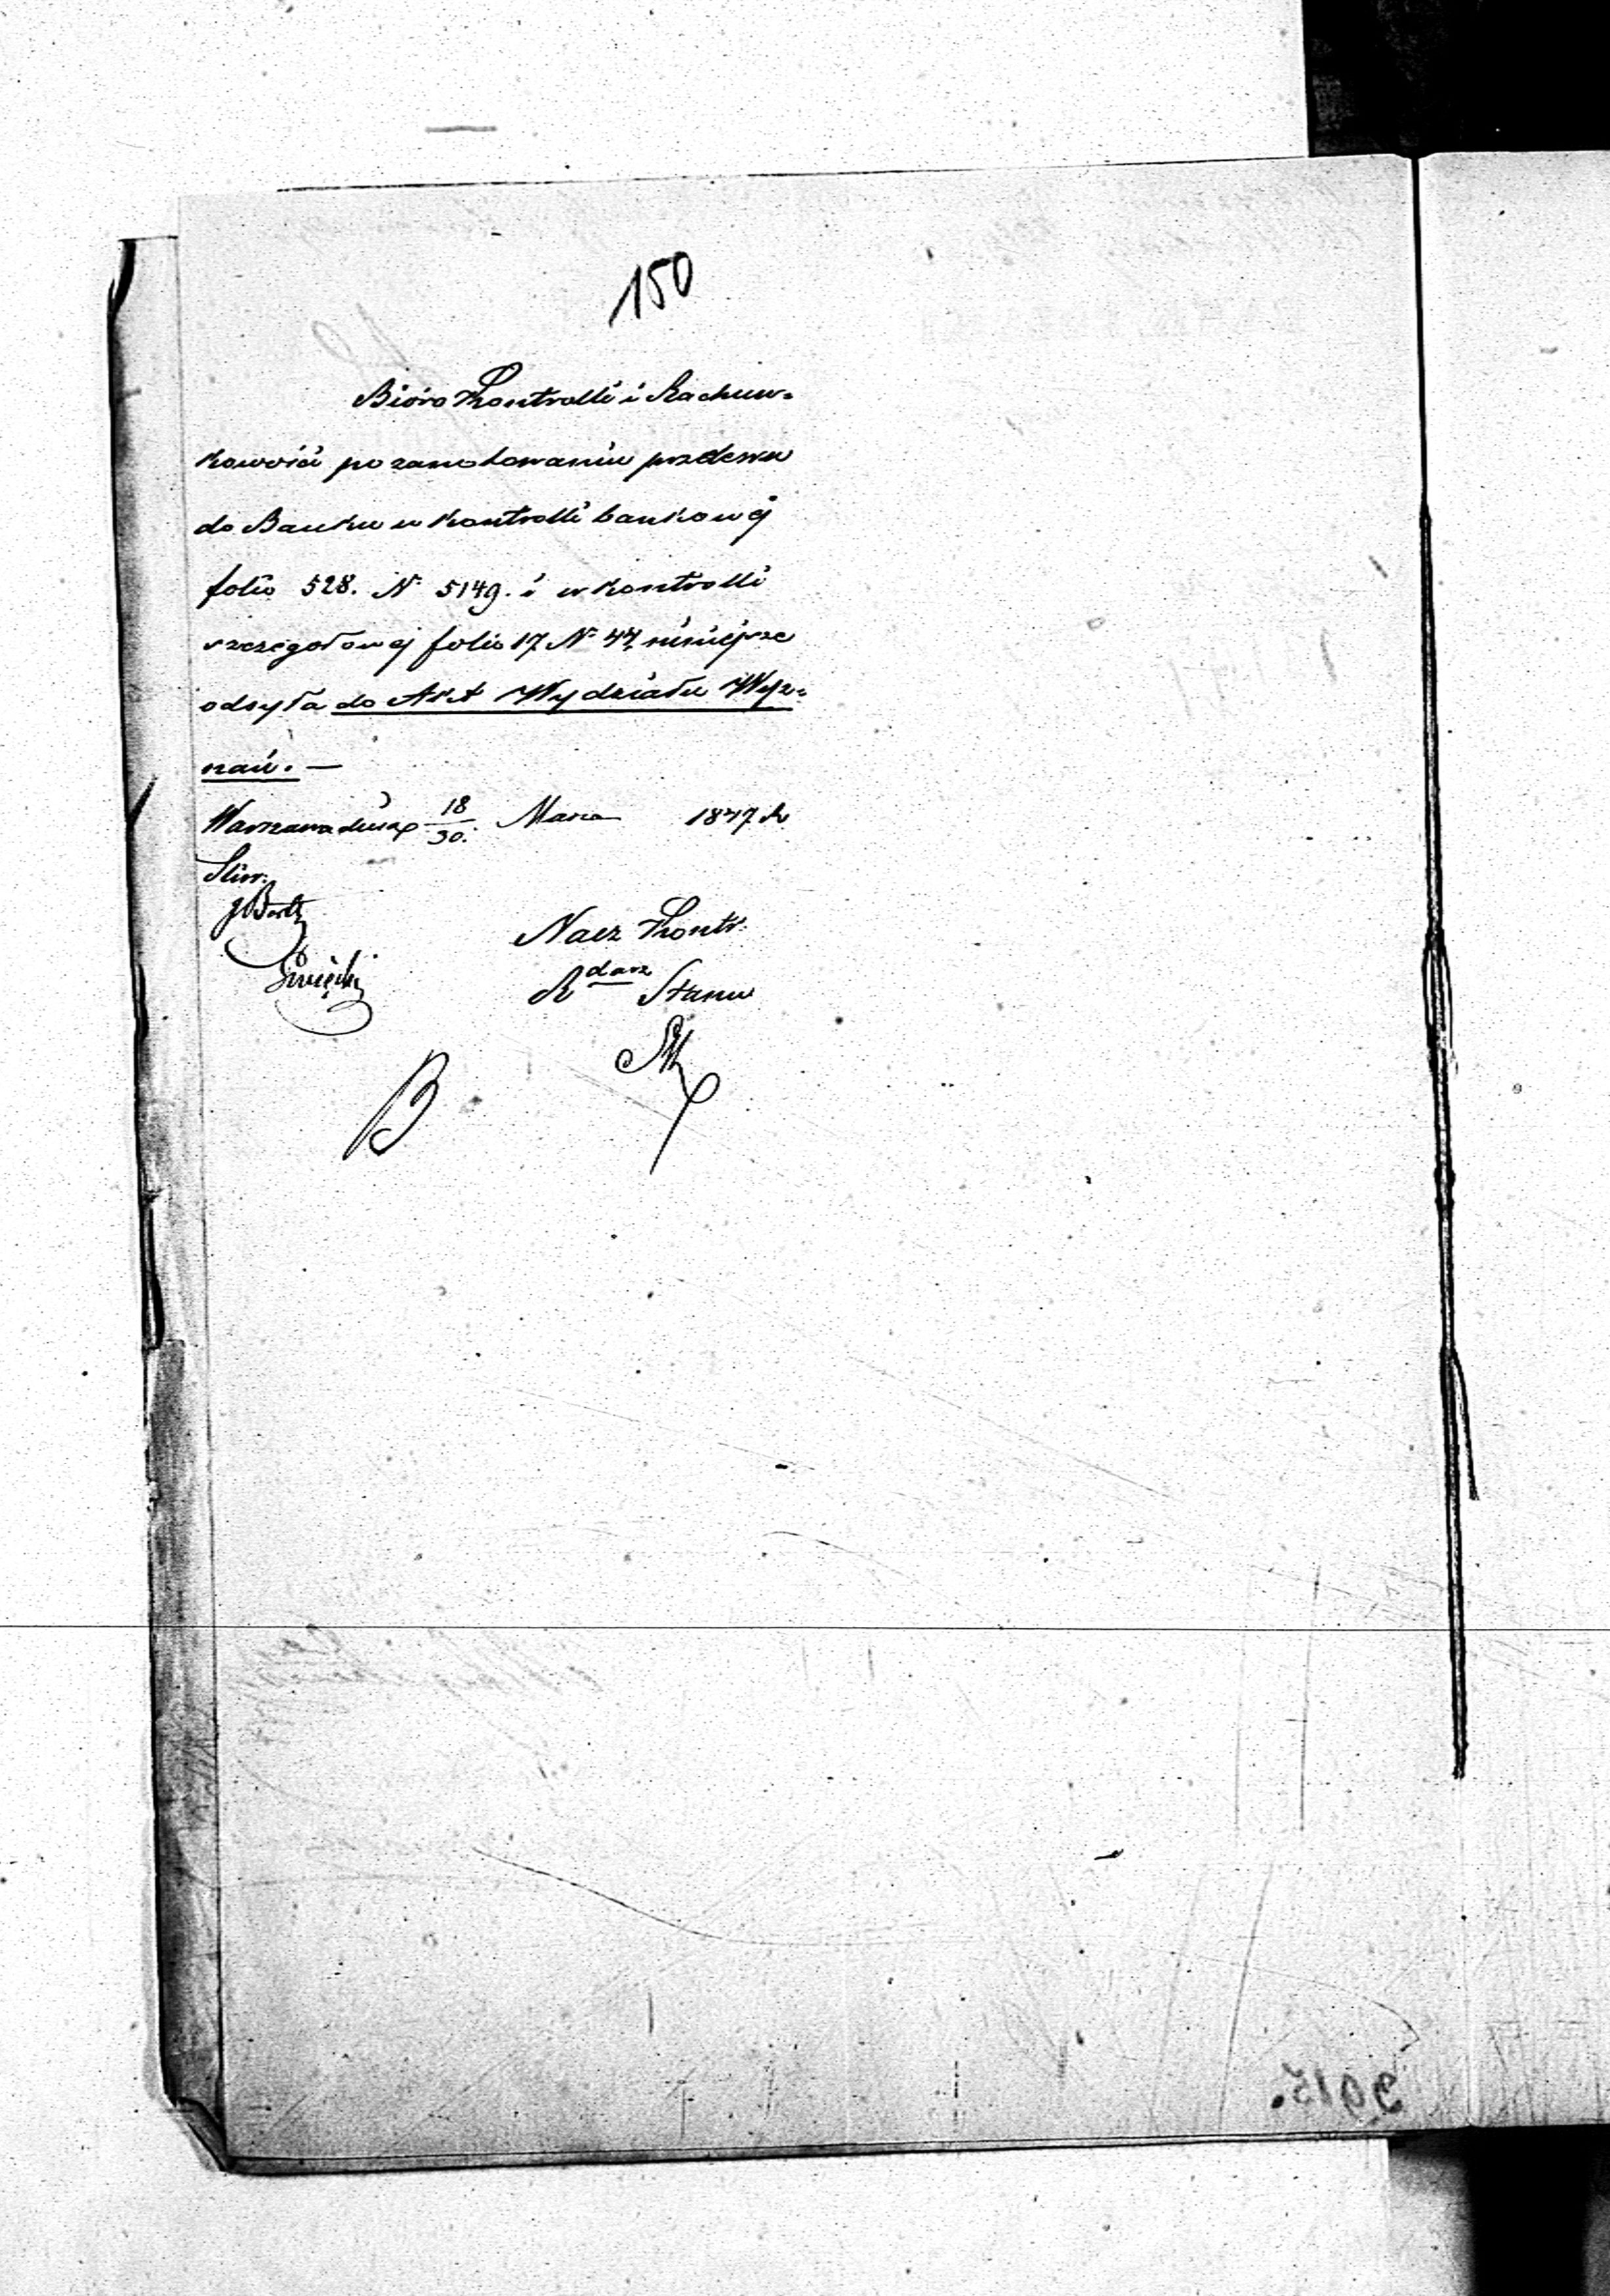 150
Bióro Kontrolli i Rachun=
kowości po zanotowaniu przelewu
do Banku w Kontrolli bankowej
folio 528. N 5149. i w Kontrolli
szczegołowej folio 17 N 44, niniejsze
odsyła do Akt Wydziału Wyz=
nań. —
Warszawa dnia 18/30. Marca 1847 R
Święcki
Nacz Kontr:
R darz Stanu
B